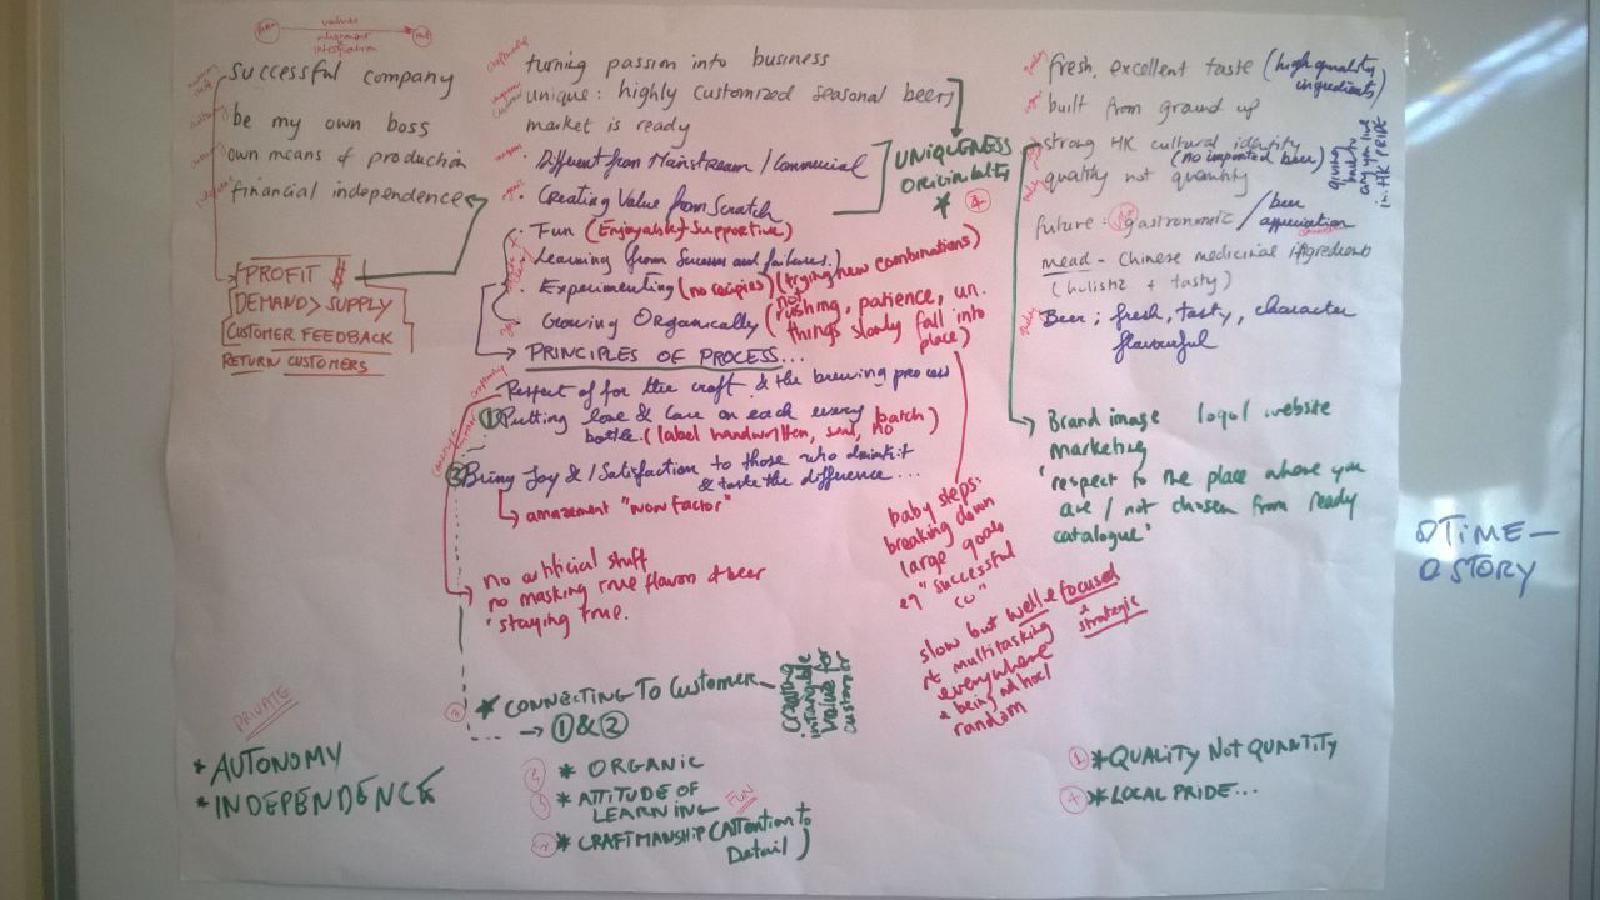 values
alignment
integration
successful company
be my own boss
own means of production
financial independence
PROFIT $
DEMAND > SUPPLY
CUSTOMER FEEDBACK
RETURN CUSTOMERS
turning passion into business
unique: highly customized seasonal beers
market is ready
Different from Mainstream / Commercial
Creating Value from Scratch
UNIQUENESS
ORIGINALITY
*
4
Fun (Enjoyable & supportive)
Learning (from Success and failures.)
Experimenting (no recipies) (trying new combinations)
Growing Organically (not rushing, patience, un.
things slowly fall into
place)
PRINCIPLES OF PROCESS...
Respect of for the craft & the brewing process
① Putting love & Care on each every batch
bottle. (label handwritten, seal, no )
② Bring Joy & / Satisfaction to those who drink it
& taste the difference ...
amazement "wow factor"
no artificial stuff
no masking true flavor of beer
"staying true.
baby steps:
breaking down
large goals
eg "successful
co"
slow but well & focused
& strategic
multitasking
everywhere
& being ad hoc/
random
* CONNECTING TO Customer
→ ① & ②
Creating
intangible
value for
customer
fresh, excellent taste (high quality
ingredients)
built from ground up
strong HK cultural identity
(no imported beer)
giving
back to
city you live
in. HK PRIDE
quality not quantity
future: gastronomic / beer
appreciation
mead - Chinese medicinal ingredients
(holistic + tasty)
Beer; fresh, tasty, character
flavourful
Brand image logo/ website
marketing
"respect to the place where you
are / not chosen from ready
catalogue"
TIME -
STORY
PRIVATE
* AUTONOMY
* INDEPENDENCE
* ORGANIC
* ATTITUDE OF
LEARNING FUN
* CRAFTMANSHIP (Attention to
Detail)
1 * QUALITY NOT QUANTITY
* LOCAL PRIDE...